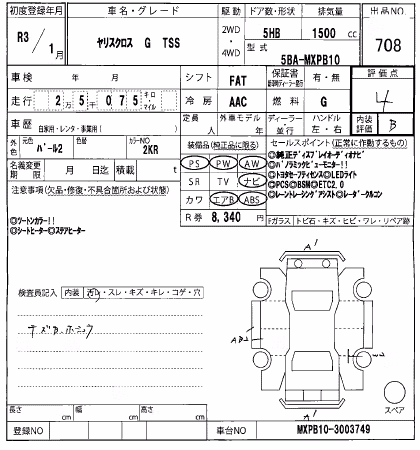 初度登録年月 車名・グレード 駆動 ドア数・形状 排気量 出品NO
R3/1月 ヤリスクロス G TSS 2WD・4WD 5HB 1500cc 708
型式
5BA-MXPB10
車検 年 月 シフト FAT 保証書 有・無 評価点
走行 2万5千075キロ・マイル 冷房 AAC 燃料 G 4
車歴 自家用・レンタ・事業用( ) 定員 人 外車モデル 年 ディーラー 並行 ハンドル 左・右 内装評価 B
外色 元色 パール2 カラーNO 2KR
名義変更期限 月 日迄 積載 t
装備品(純正品に限る) セールスポイント(正常に作動するもの)
PS PW AW
SR TV ナビ
カワ エアB ABS
R券 8,340 円
◎純正ディスプレイオーディオナビ
◎パノラミックビューモニター!!
◎トヨタセーフティセンス◎LEDライト
◎PCS◎BSM◎ETC2.0
◎レーントレーシングアシスト◎レーダークルコン
注意事項(欠品・修復・不具合箇所および状態)
◎ツートンカラー!!
◎シートヒーター◎ステアヒーター
Fガラス トビ石・キズ・ヒビ・ワレ・リペア跡
検査員記入 内装 汚レ・スレ・キズ・キレ・コゲ・穴
A1
スペア
A1
長さ cm 幅 cm 高さ cm
登録NO 車台NO MXPB10-3003749